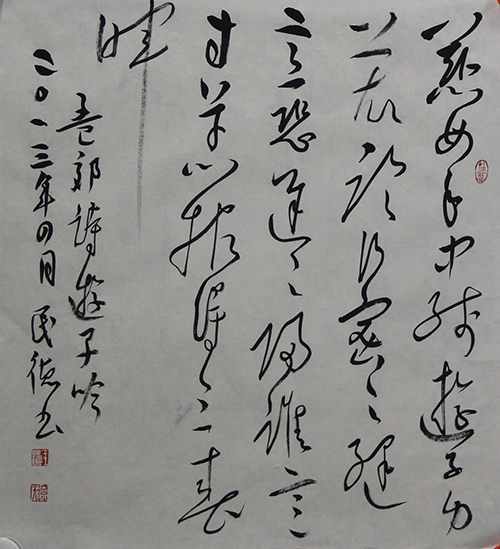 慈母手中线遊子身
上衣临行密々缝
意恐迟々归谁言
寸草心报得三春
晖
孟郊詩遊子吟
二〇一三年四月 民德书